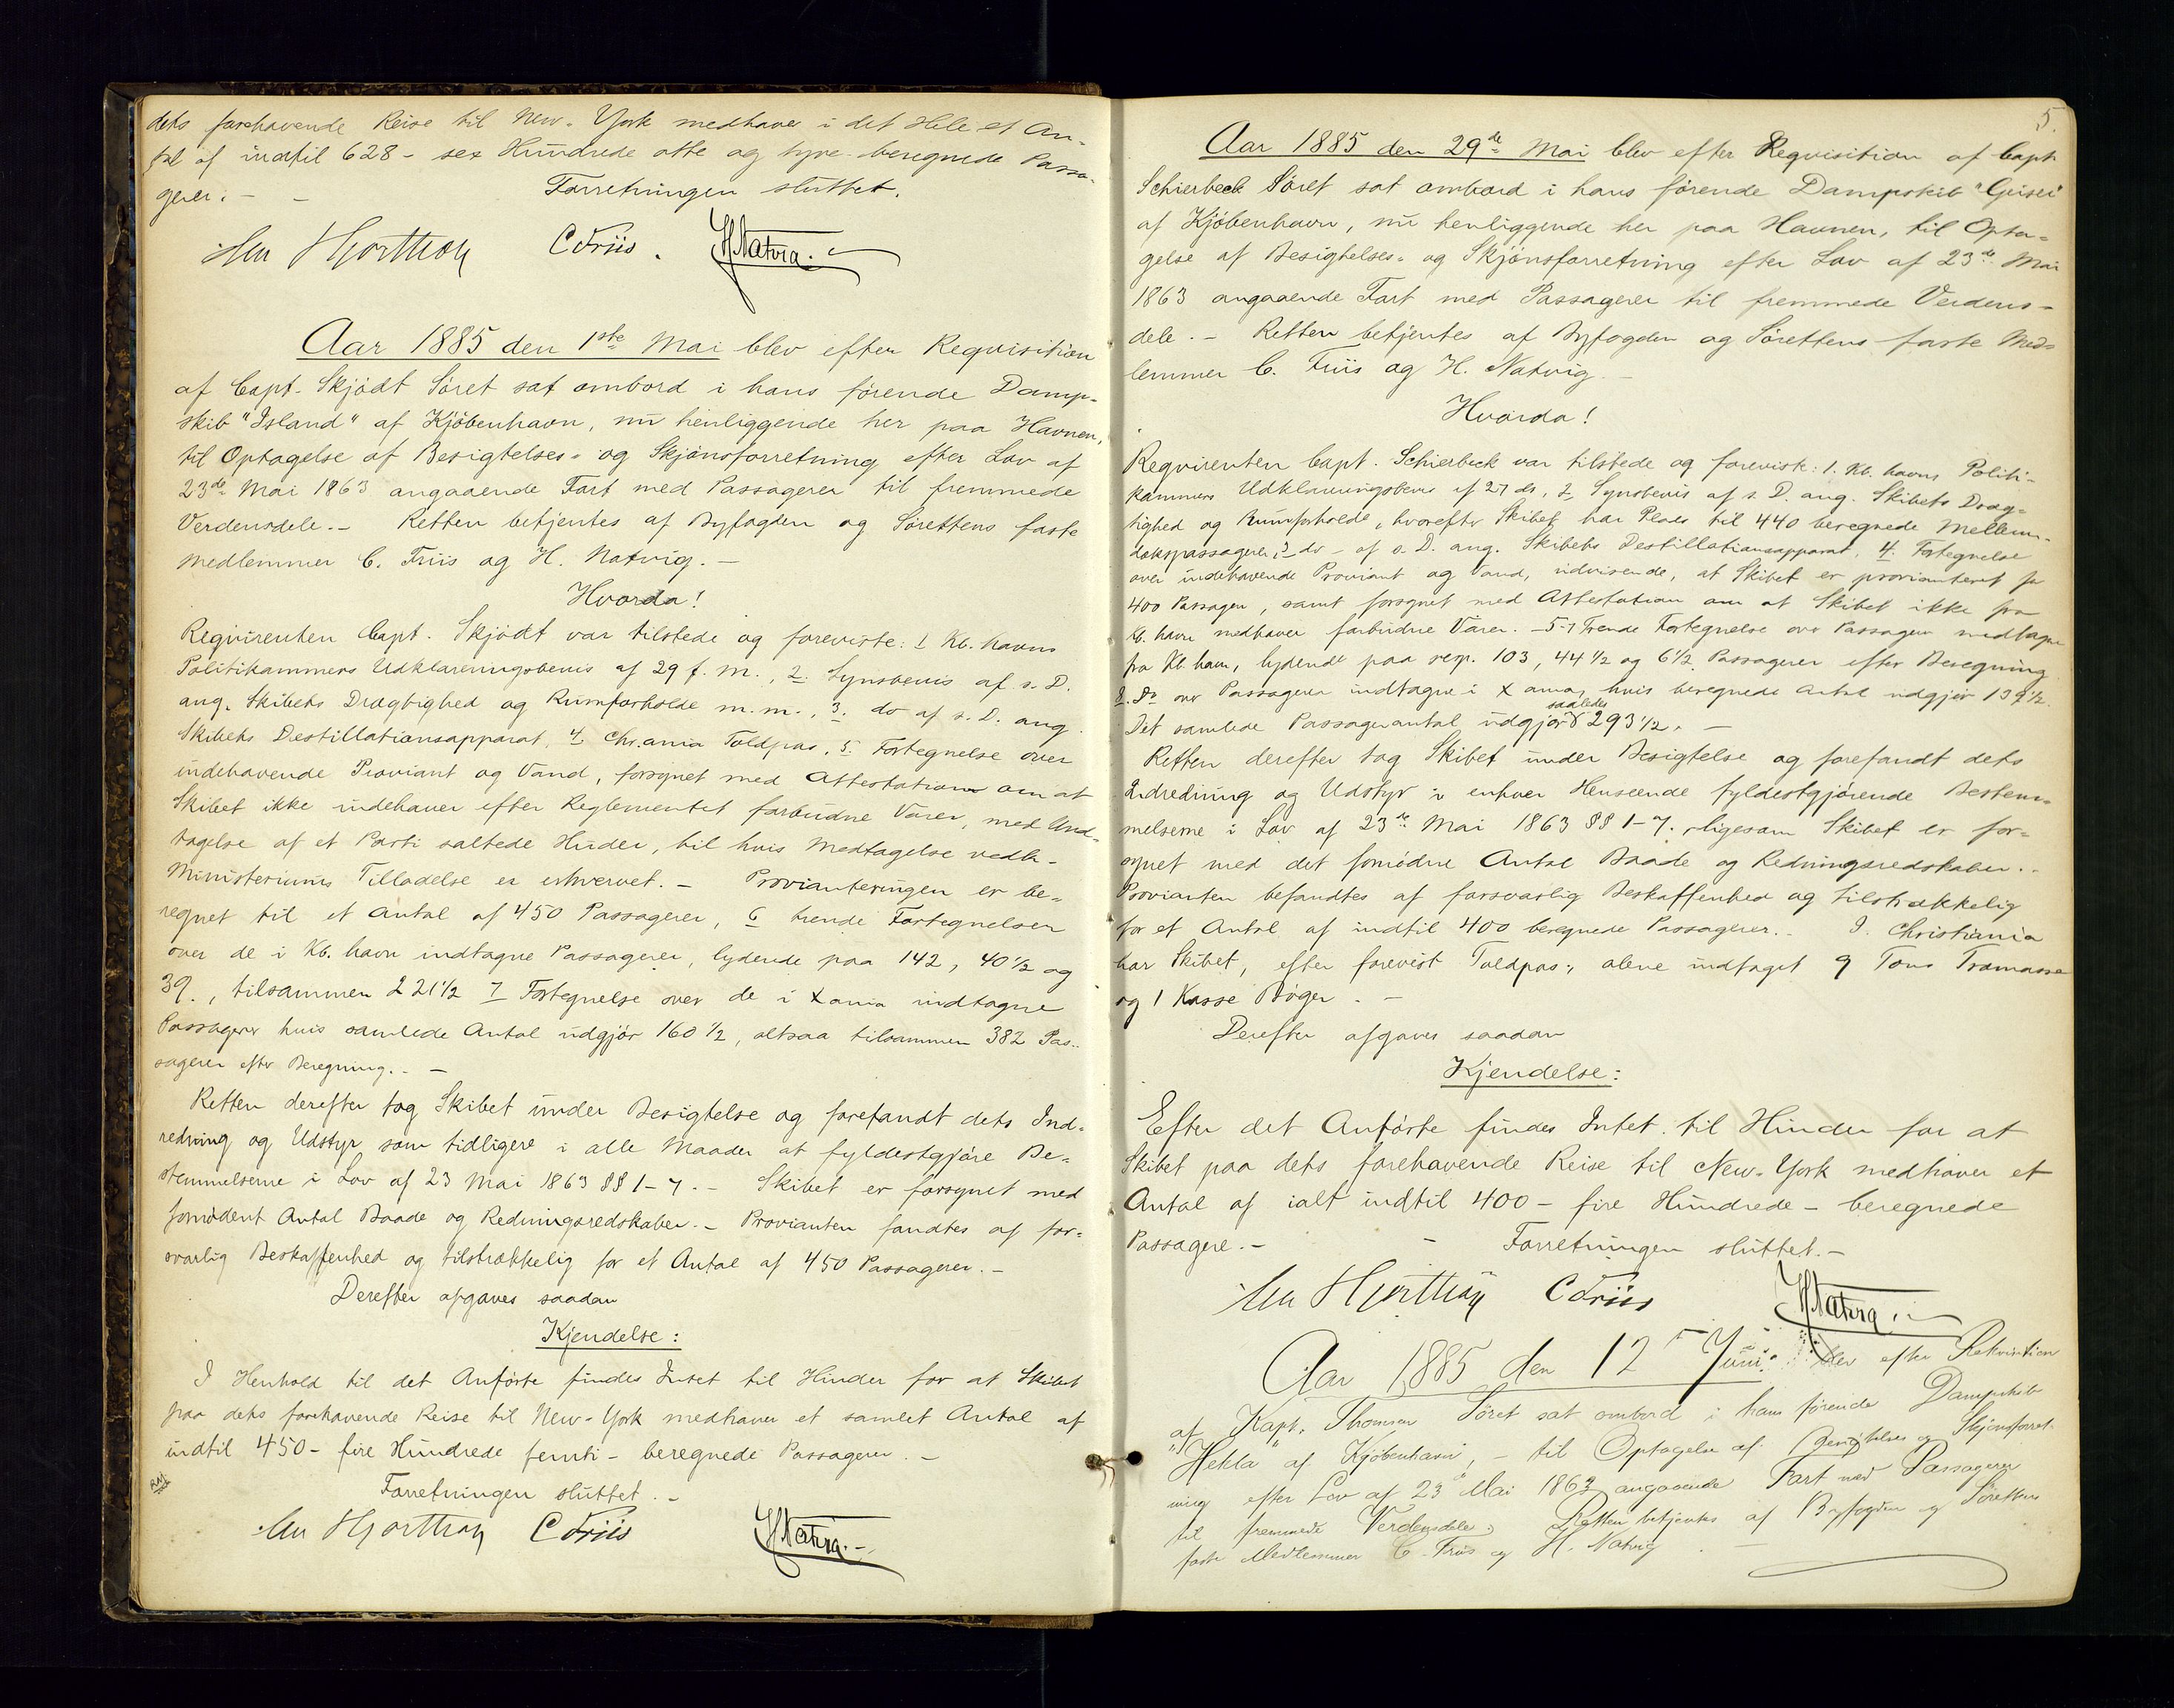 dets forehavende Reise til New-York medhaver i det Hele et An-
tal af indtil 628 - sex Hundrede otte og tyve - beregnede Passa-
gerer. - -
Forretningen sluttet.
C Friis. HNatvig.
Aar 1885 den 1ste Mai blev efter Requisition
af Capt. Skjödt Söret sat ombord i hans förende Damp-
skib "Island" af Kjöbenhavn, nu henliggende her paa Havnen,
til Optagelse af Besigtelses- og Skjönsforretning efter Lov af
23de Mai 1863 angaaende Fart med Passagerer til fremmede
Verdensdele. - Retten betjentes af Byfogden og Sörettens faste
Medlemmer C. Friis og H. Natvig. -
Hvorda!
Reqvirenten Capt. Skjödt var tilstede og foreviste: 1 Kb. havns
Politikammers Udklareringsbevis af 29 f. M., 2. Synsbevis af s. D.
ang. Skibets Drægtighed og Rumforholde m.m., 3. do af s. D. ang
Skibets Destillationsapparat, 4. Chr.ania Toldpas, 5. Fortegnelse over
indehavende Proviant og Vand, forsynet med Attestation om at
Skibet ikke indehaver efter Reglementet forbudne Varer, med Und-
tagelse af et Parti saltede Huder, til hvis Medtagelse vedk-
Ministeriums Tilladelse er erhvervet. - Provianteringen er be-
regnet til et Antal af 450 Passagerer, 6 trende Fortegnelser
over de i Kb. havn indtagne Passagerer, lydende paa 142, 40 1/2 og
39., tilsammen 221 1/2 7 Fortegnelse over de i Xania indtagne
Passagerer hvis samlede Antal udgjör 160 1/2, altsaa tilsammen 382 Pas-
sagerer efter Beregning. - -
Retten derefter tog Skibet under Besigtelse og forefandt dets Ind-
redning og Udstyr som tidligere i alle Maader at fyldestgjöre Be-
stemmelserne i Lov af 23 Mai 1863 §§ 1-7. - Skibet er forsynet med
fornödent Antal Baade og Redningsredskaber. - Provianten fandtes af for-
svarlig Beskaffenhed og tilstrækkelig for et Antal af 450 Passagerer. -
Derefter afgaves saadan
Kjendelse:
I Henhold til det Anförte findes Intet til Hinder for at Skibet
paa dets forehavende Reise til New-York medhaver et samlet Antal af
indtil 450 - fire Hundrede femti - beregnede Passagerer. -
Forretningen sluttet. -
C Friis HNatvig. -
5.
Aar 1885 den 29de Mai blev efter Requisition af Capt
Schierbeck Söret sat ombord i hans förende Dampskib "Geiser"
af Kjöbenhavn, nu henliggende her paa Havnen, til Opta-
gelse af Besigtelses- og Skjönsforretning efter Lov af 23de Mai
1863 angaaende Fart med Passagerer til fremmede Verdens-
dele. - Retten betjentes af Byfogden og Sörettens faste Med-
lemmer C. Friis og H. Natvig. -
Hvorda!
Reqvirenten Capt. Schierbeck var tilstede og foreviste: 1. Kb. havns Politi-
kammers Udklareringsbevis af 27 ds, 2 Synsbevis af s. D. ang. Skibets Dræg-
tighed og Rumforholde, hvorefter Skibet har Plads til 440 beregnede Mellem-
dækspassagerer, 3 do - af s. D. ang. Skibets Destillationsapparat, 4. Fortegnelse
over indehavende Proviant og Vand, udvisende, at Skibet er provianteret for
400 Passagerer, samt forsynet med Attestation om at Skibet ikke fra
Kb. havn medhaver forbudne Varer. - 5-7 Trende Fortegnelse over Passagerer medtagne
fra Kb. havn, lydende paa resp. 103, 44 1/2 og 6 1/2 Passagerer efter Beregning
8. Do over Passagerer indtagne i Xania, hvis beregnede Antal udgjör 139 1/2.
Det samlede Passagerantal udgjör saaledes 293 1/2. -
Retten derefter tog Skibet under Besigtelse og forefandt dets
Indredning og Udstyr i enhver Henseende fyldestgjörende Bestem-
melserne i Lov af 23de Mai 1863 §§ 1-7. ligesom Skibet er for-
synet med det fornödne Antal Baade og Redningsredskaber. -
Provianten befandtes af forsvarlig Beskaffenhed og tilstrækkelig
for et Antal af indtil 400 beregnede Passagerer. - I Christiania
har Skibet, efter forevist Toldpas, alene indtaget 9 Tons Tramasse
og 1 Kasse Böger. -
Derefter afgaves saadan
Kjendelse:
Efter det Anförte findes Intet til Hinder for at
Skibet paa dets forehavende Reise til New-York medhaver et
Antal af ialt indtil 400 - fire Hundrede - beregnede
Passagere. - - Forretningen sluttet. -
C Friis HNatvig. -
Aar 1885 den 12 Juni blev efter Rekvisition
af Kapt. Thomsen Söret sat ombord i hans förende Dampskib
"Hekla" af Kjöbenhavn, - til Optagelse af Besigtelses og Skjönsforret-
ning efter Lov af 23 Mai 1863 angaaende Fart med Passagerer
til fremmede Verdensdele. Retten betjentes af Byfogden og Sörettens
faste Medlemmer C. Friis og H. Natvig